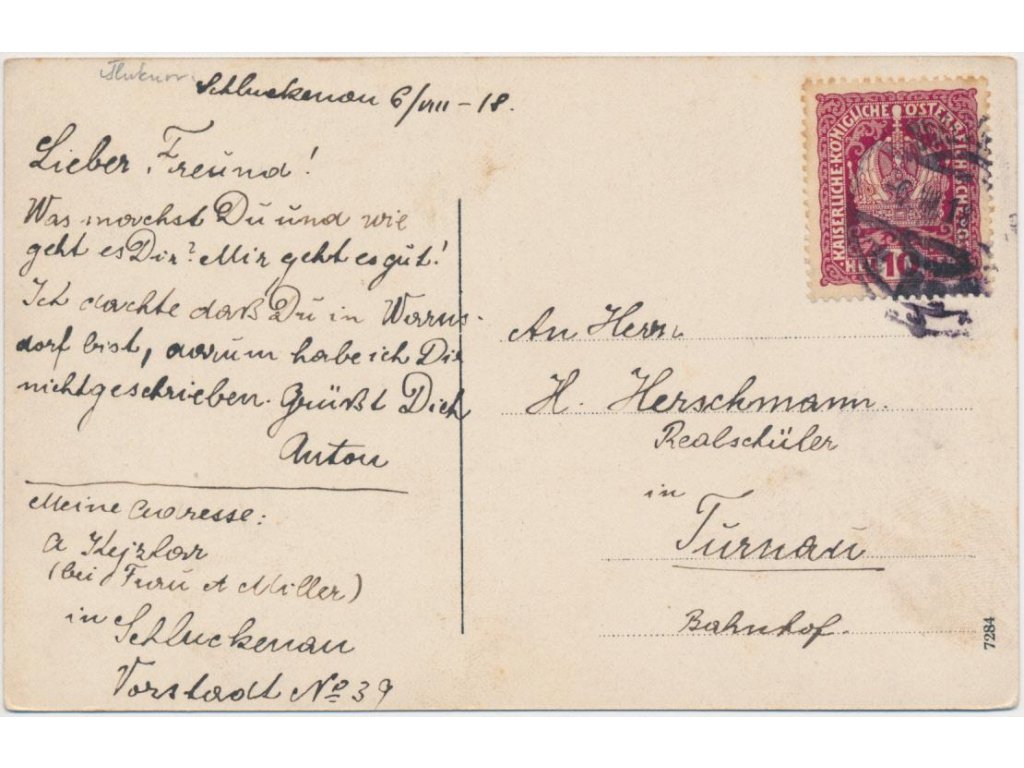 Schluckenau 6/VIII-18.
Lieber Freund!
Was machst Du und wie
geht es Dir? Mir geht es gut!
Ich dachte daß Du in Warns-
dorf bist, darum habe ich Dir
nicht geschrieben. Grüßt Dich
Anton
Meine Adresse:
A Kejzlar
(bei Frau A Miller)
in
Schluckenau
Vorstadt No 39
KAISERLICHE KÖNIGLICHE ÖSTERREICHISCHE POST
10
An Herrn
H. Herschmann.
Realschüler
in
Turnau
Bahnhof.
7284